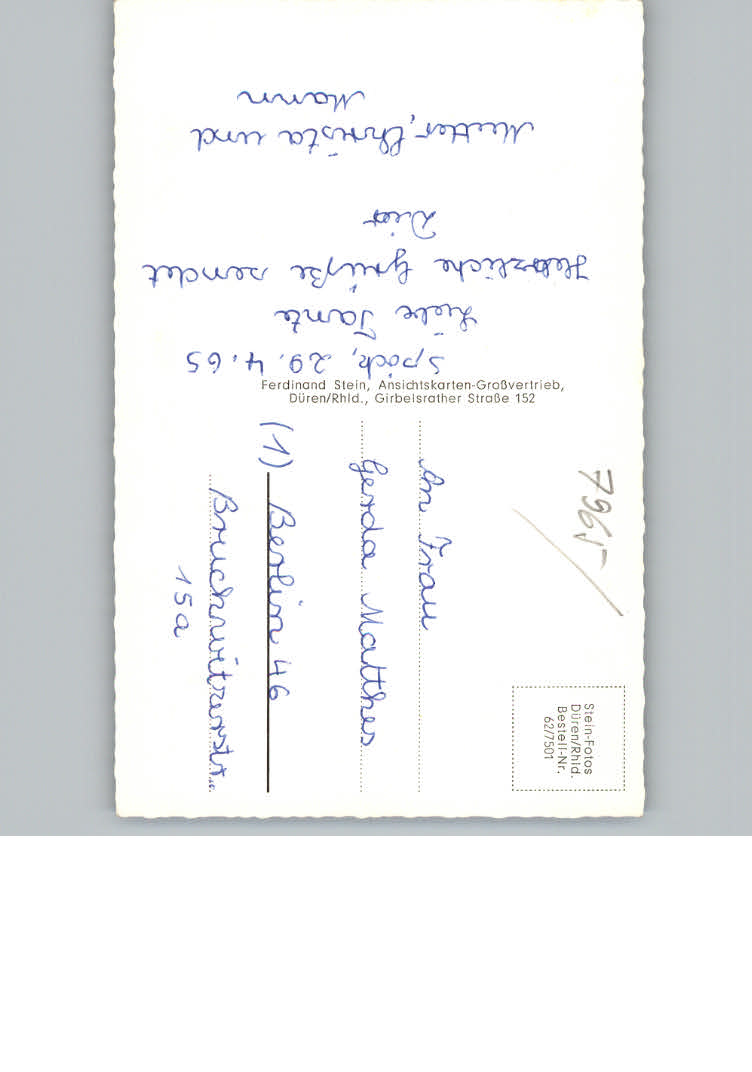 Spöck, 29.4.65
Liebe Tante
Herzliche Grüße sendet
Dir
Mutter, Christa und
Mann
Ferdinand Stein, Ansichtskarten-Großvertrieb,
Düren/Rhld., Girbelsrather Straße 152
7965
Stein-Fotos
Düren/Rhld.
Bestell-Nr.
62/7501
An Frau
Gerda Matthes
(1) Berlin 46
Bruchwitzerstr.
15a